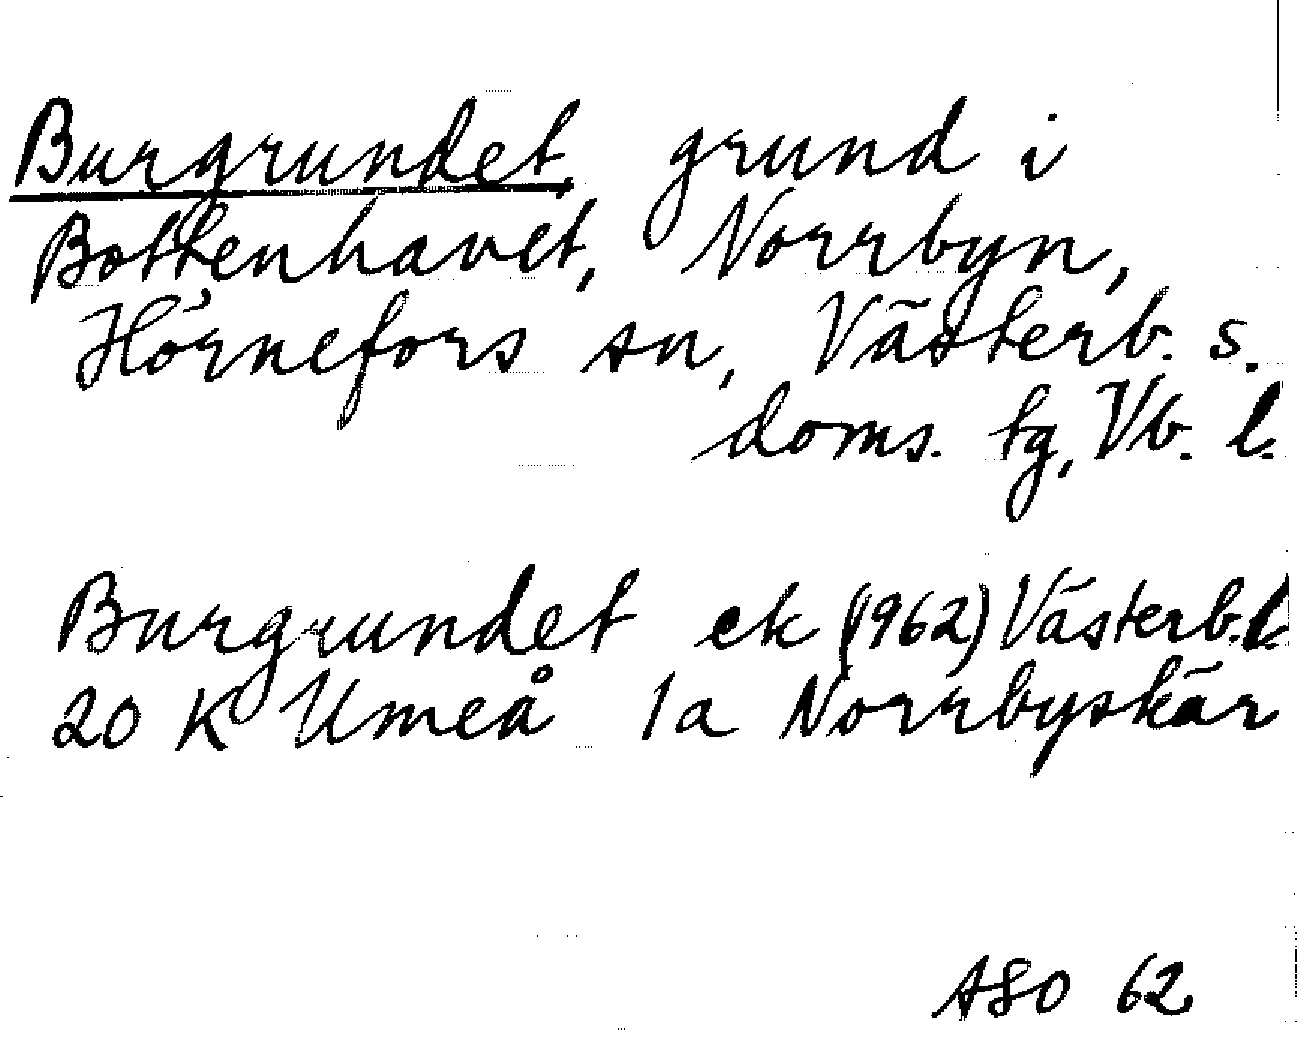 Burgrundet, grund i
Bottenhavet, Norrbyn,
Hörnefors sn, Västerb. s.
doms. tg, Vb. l.
Burgrundet ek (1962) Västerb. l.
20 K Umeå 1a Norrbyskär
ASO 62